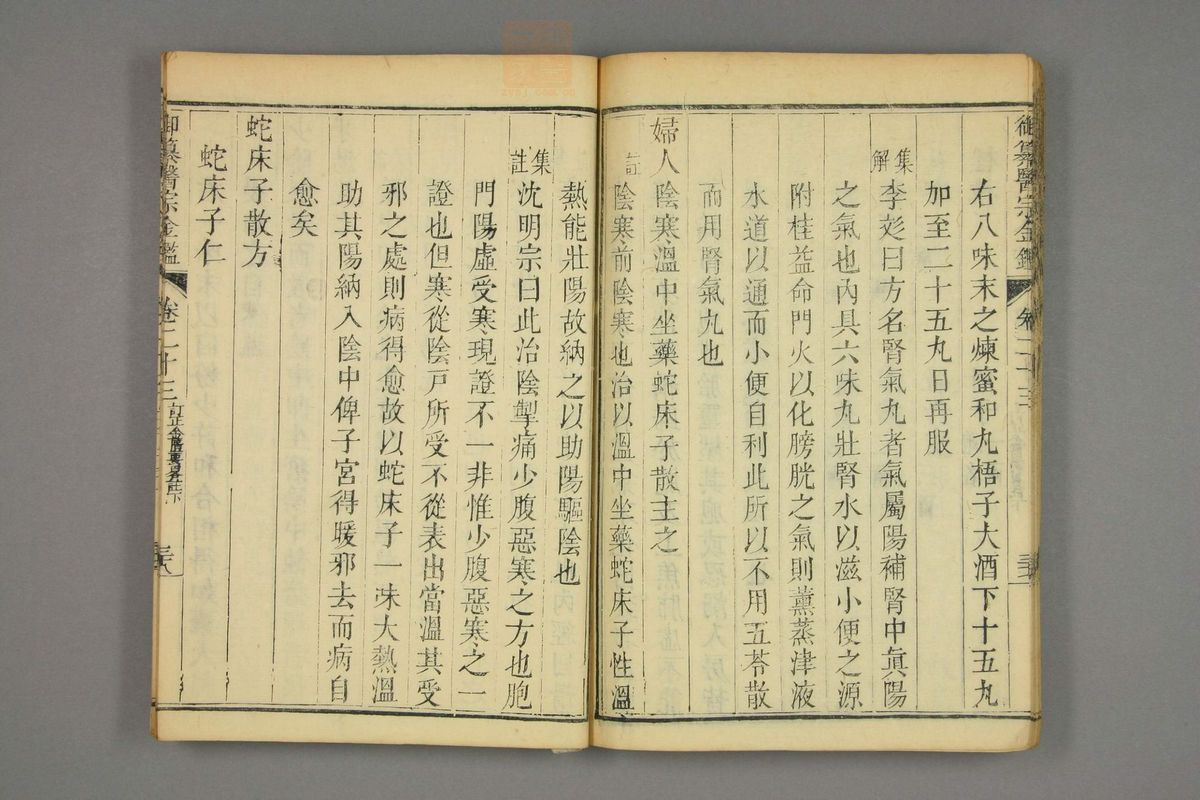 御纂醫宗金鑑 卷二十三
右八味末之煉蜜和丸梧子大酒下十五丸
加至二十五丸日再服
集解
李彣曰方名腎氣丸者氣屬陽補腎中眞陽
之氣也內具六味丸壯腎水以滋小便之源
附桂益命門火以化膀胱之氣則薰蒸津液
水道以通而小便自利此所以不用五苓散
而用腎氣丸也
婦人陰寒溫中坐藥蛇床子散主之
註
陰寒前陰寒也治以溫中坐藥蛇床子性溫
熱能壯陽故納之以助陽驅陰也
集註
沈明宗曰此治陰掣痛少腹惡寒之方也胞
門陽虛受寒現證不一非惟少腹惡寒之一
證也但寒從陰戶所受不從表出當溫其受
邪之處則病得愈故以蛇床子一味大熱溫
助其陽納入陰中俾子宮得暖邪去而病自
愈矣
蛇床子散方
蛇床子仁
御纂醫宗金鑑 卷二十三 訂正金匱要畧註下